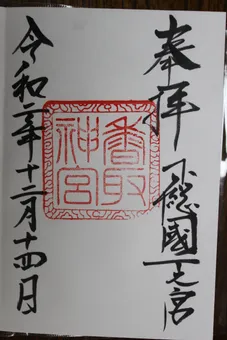 奉拝
下総國一之宮
香取
神宮
令和二年十二月十四日